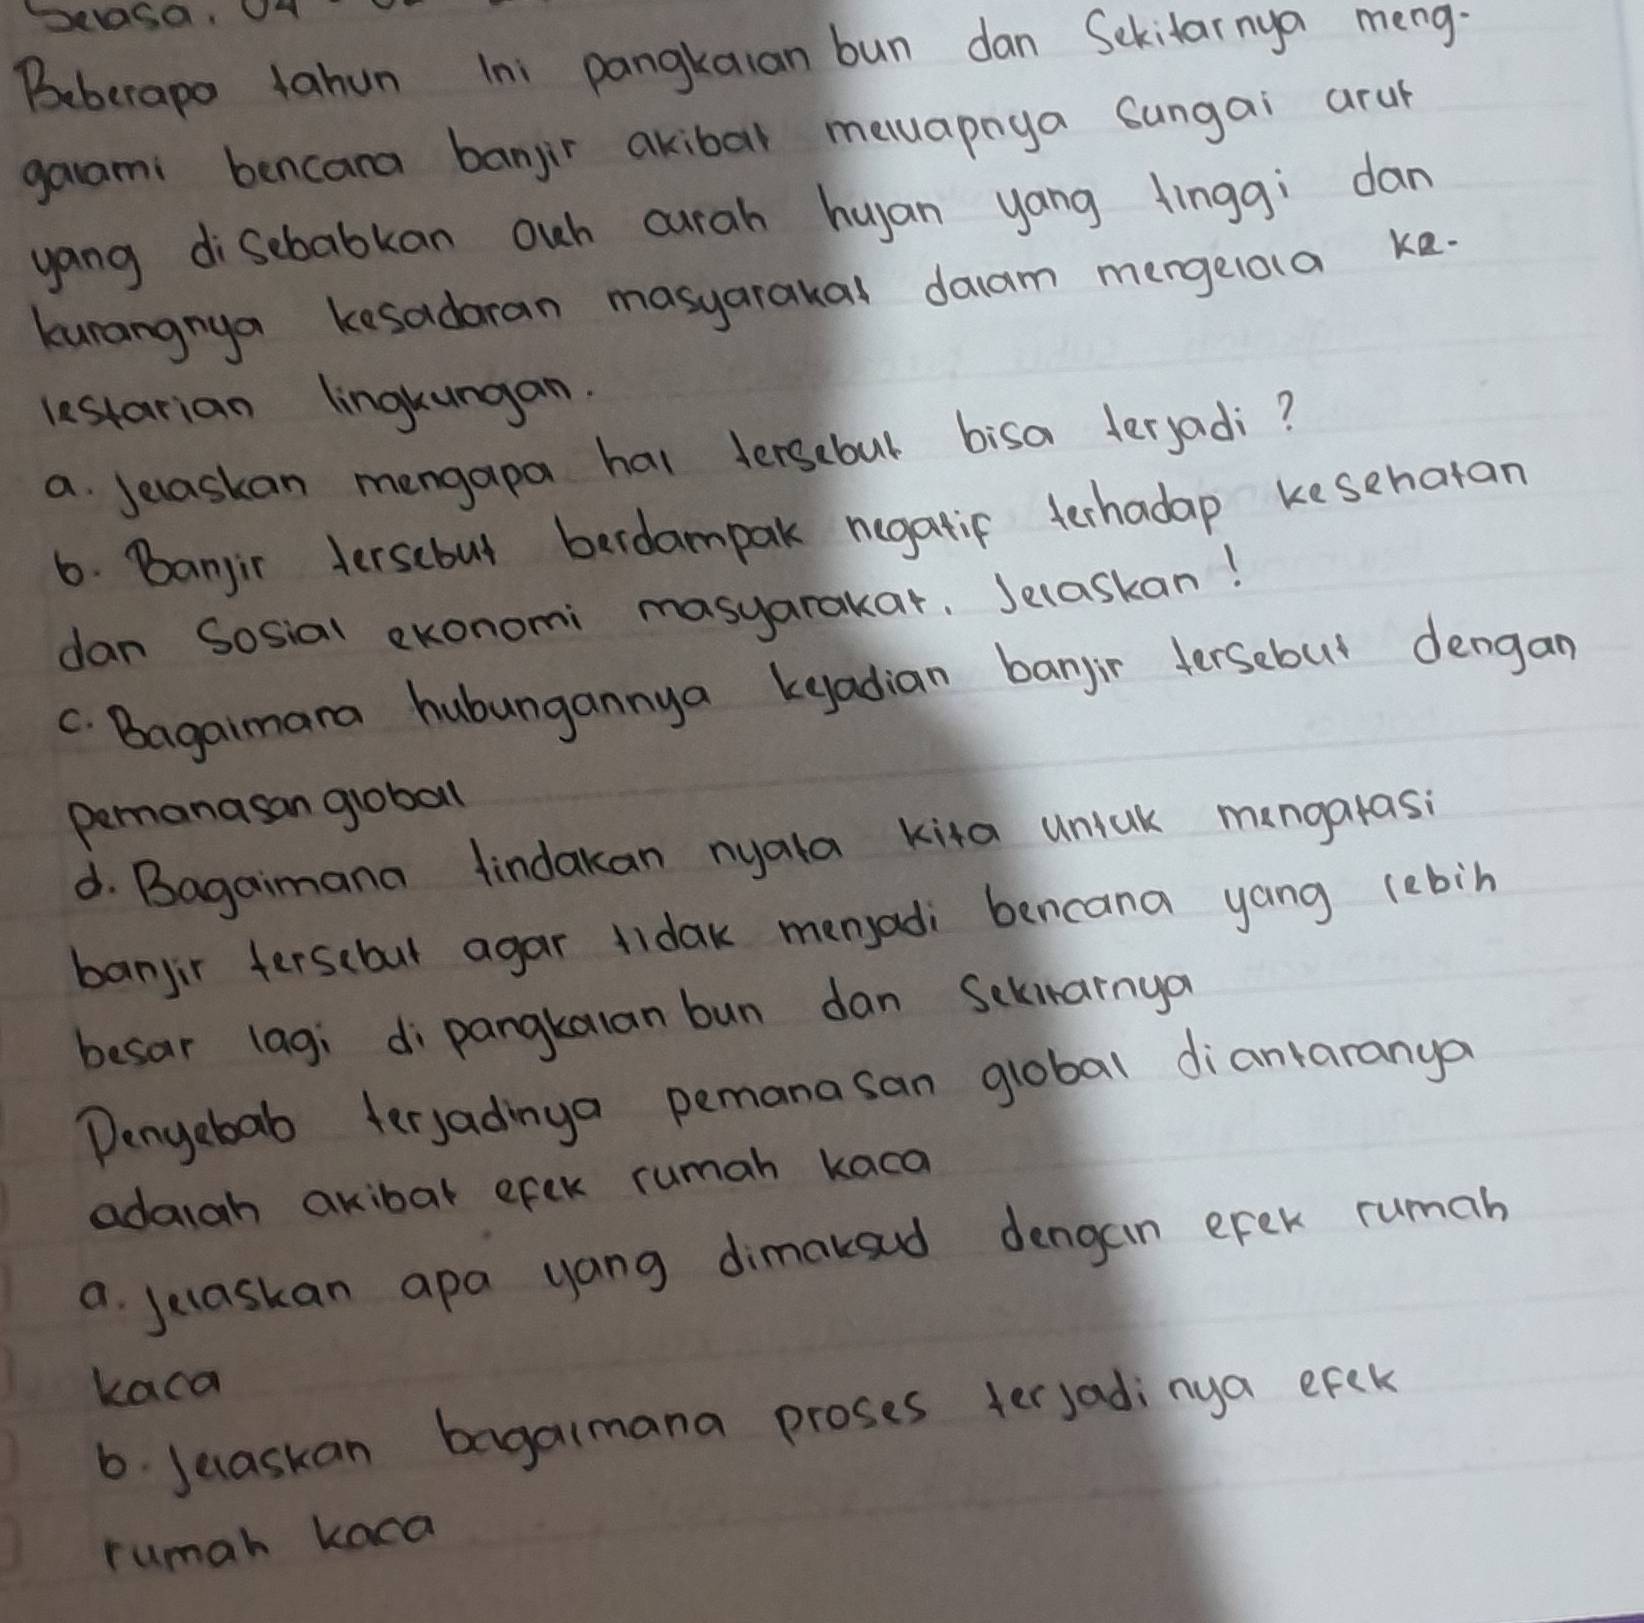 Selasa, 04
Beberapa tahun ini pangkalan bun dan Sekitarnya meng-
galami bencana banjir akibat meluapnya sungai arut
yang disebabkan oleh curah hujan yang tinggi dan
kurangnya kesadaran masyarakat dalam mengelola ke-
lestarian lingkungan.
a. Jelaskan mengapa hal tersebut bisa terjadi?
b. Banjir tersebut berdampak negatif terhadap kesehatan
dan Sosial ekonomi masyarakat. Jelaskan!
c. Bagaimana hubungannya kejadian banjir tersebut dengan
pemanasan global
d. Bagaimana tindakan nyata kita untuk mengatasi
banjir tersebut agar tidak menjadi bencana yang lebih
besar lagi di pangkalan bun dan Sekitarnya
Penyebab terjadinya pemanasan global diantaranya
adalah akibat efek rumah kaca
a. Jelaskan apa yang dimaksud dengan efek rumah
kaca
b. Jelaskan bagaimana proses terjadinya efek
rumah kaca